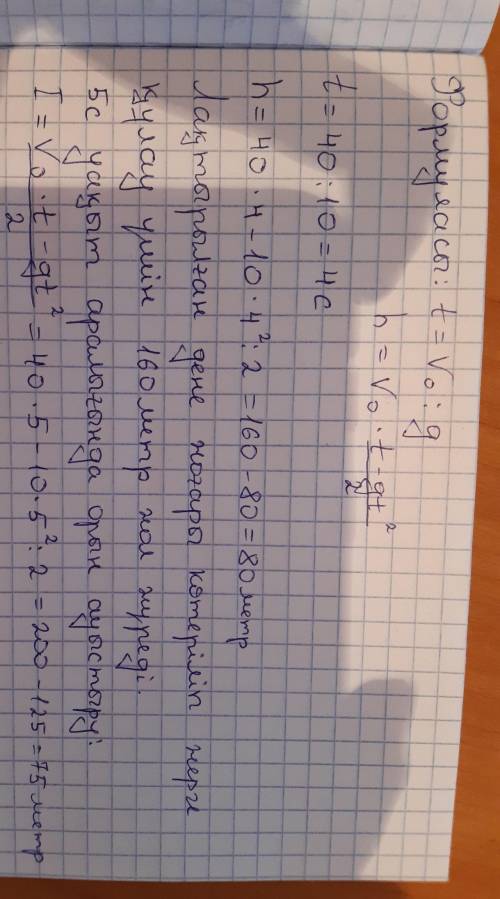 Формуласы: t = V₀ : g
h = V₀ · t - gt² / 2
t = 40 : 10 = 4с
h = 40 · 4 - 10 · 4² : 2 = 160 - 80 = 80 метр
Лақтырылған дене жоғары көтеріліп жерге
құлау үшін 160 метр жол жүреді.
5с уақыт аралығында орын ауыстыру:
I = V₀ · t - gt² / 2 = 40 · 5 - 10 · 5² : 2 = 200 - 125 = 75 метр